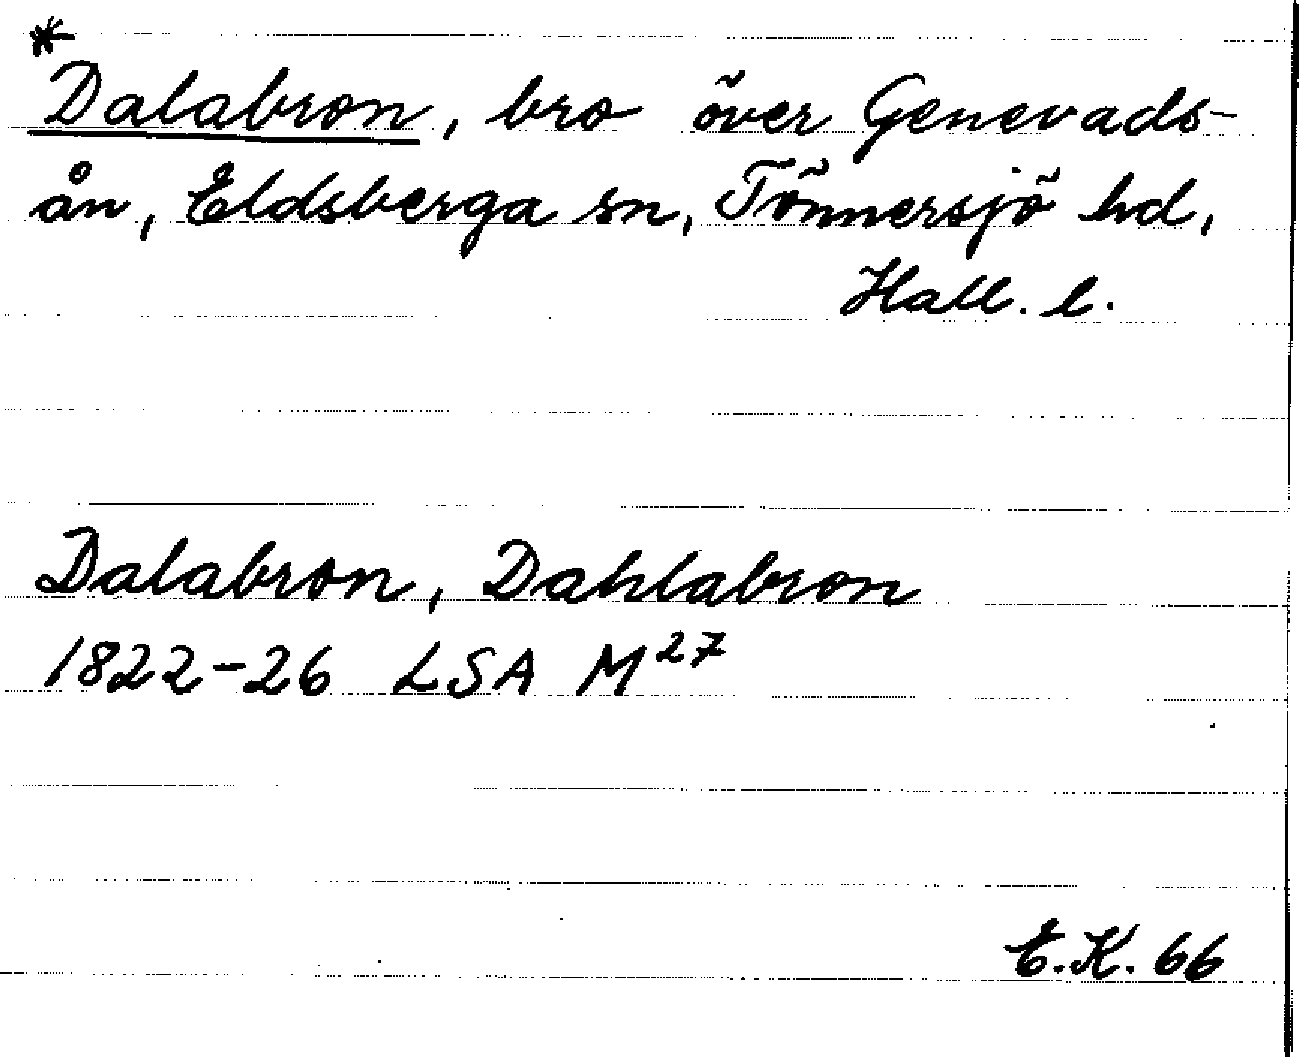 *
Dalabron, bro över Genevads-
ån, Eldsberga sn, Tönnersjö hd,
Hall. l.
Dalabron, Dahlabron
1822-26 LSA M²⁷
E.K. 66